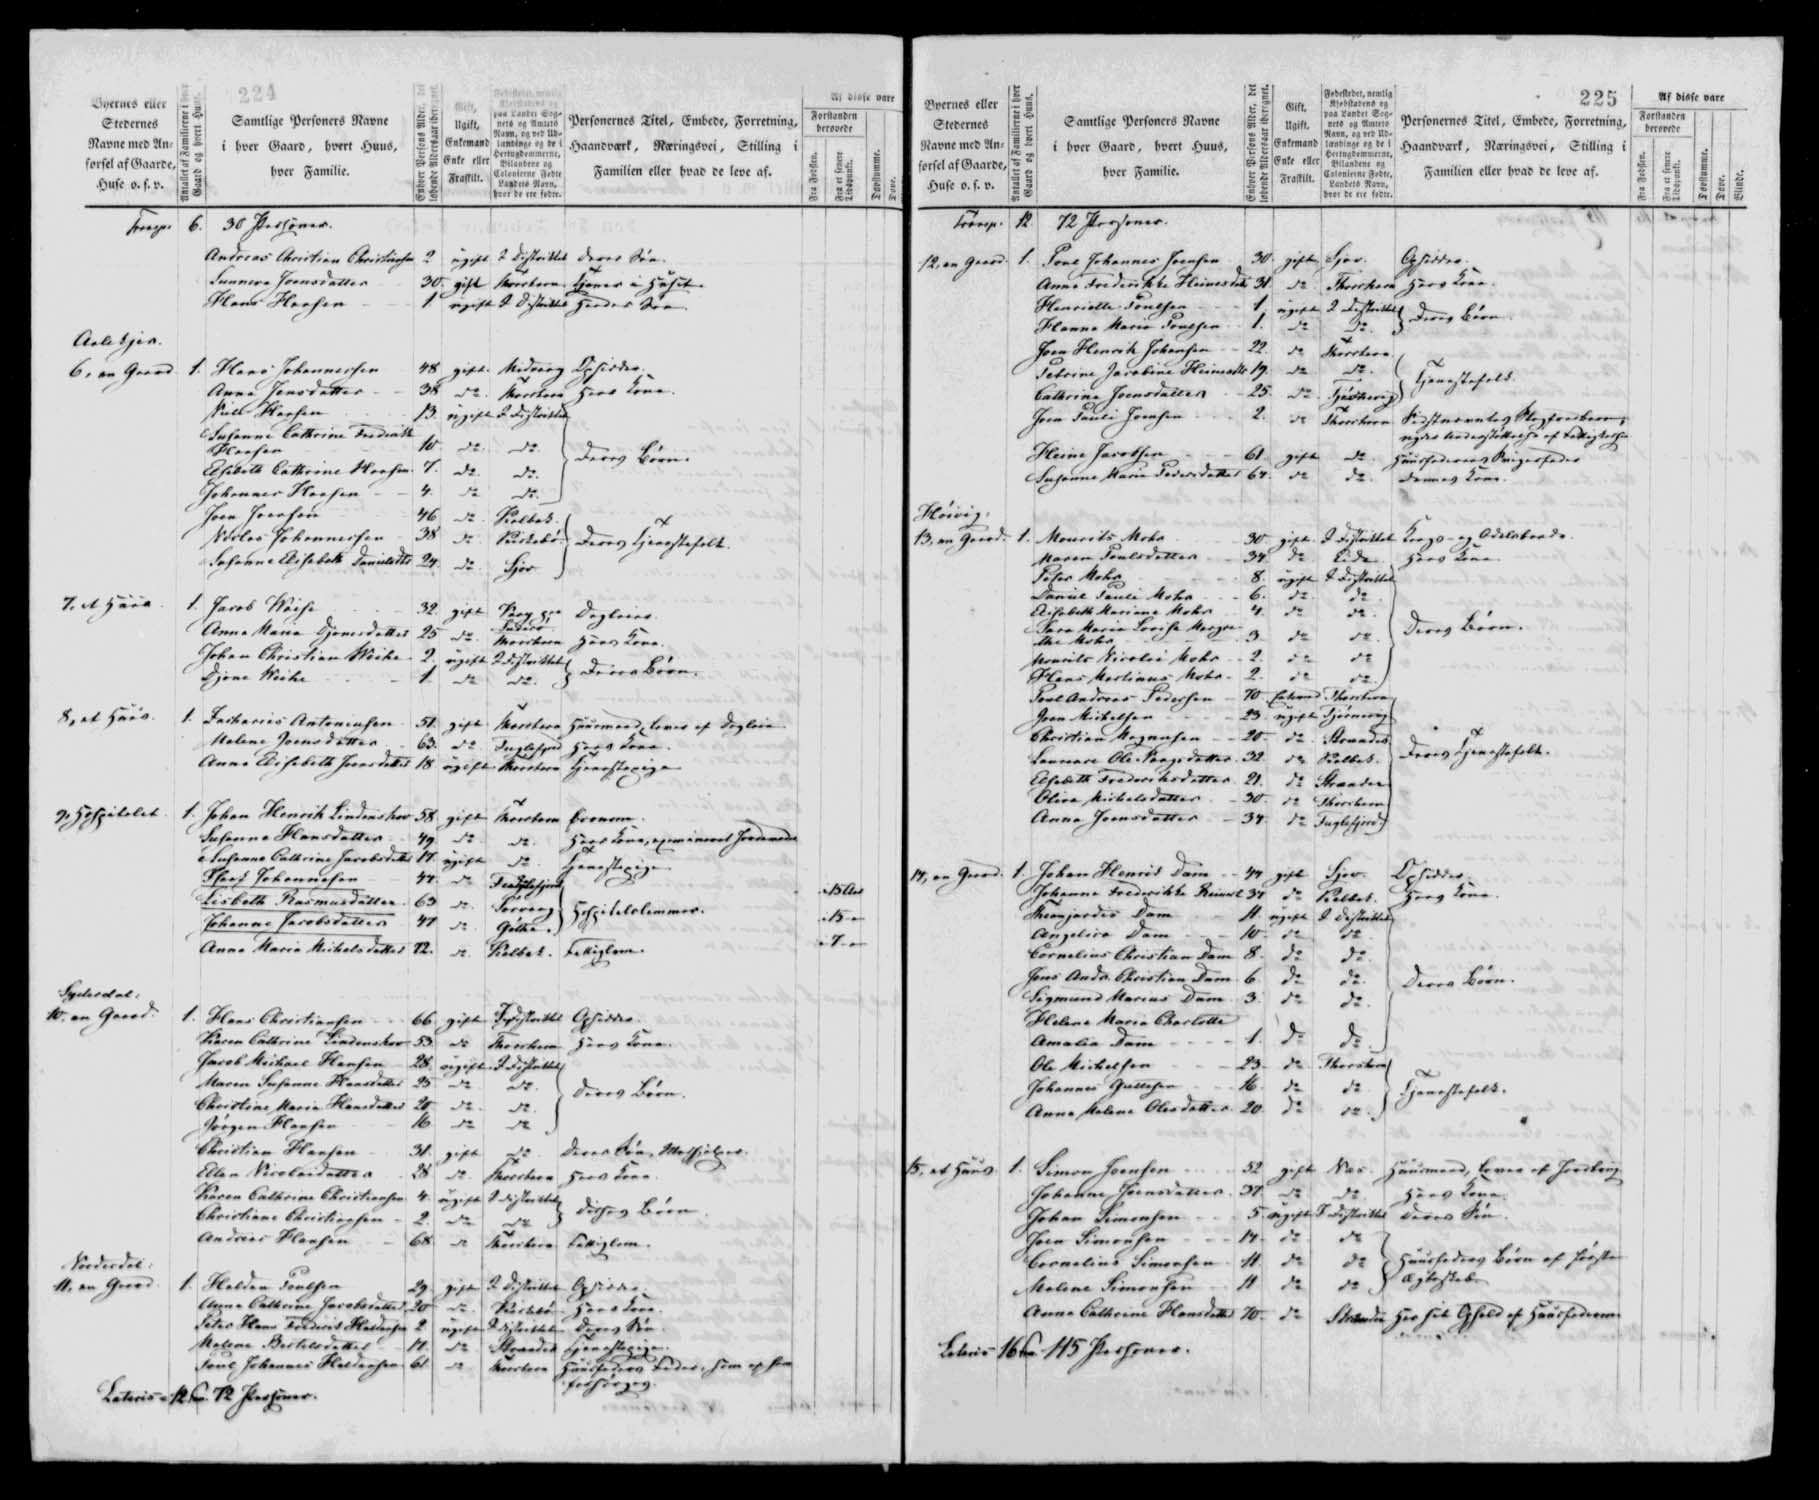 224
Byernes eller Stedernes Navne med Anførsel af Gaarde, Huse o. s. v.
Antallet af Familierne i hver Gaard og hvert Huus.
Samtlige Personers Navne i hver Gaard, hvert Huus, hver Familie.
Gift, Ugift, Enkemand Enke eller Fraskilt.
Personernes Titel, Embede, Forretning, Haandværk, Næringsvei, Stilling i Familien eller hvad de leve af.
Af disse vare
Forstanden berøvede
Fra Fødslen.
Fra et senere Tidspunkt.
Døvstumme.
Transp. 6. 30 Personer.
Andreas Christian Christiansen 2 ugift I Distriktet Deres Søn.
Sunneva Joensdatter 30. gift Thorshavn Tjener i Huset
Hans Hansen 1. ugift I Distriktet Hendes Søn.
6, en Gaard 1. Hans Johannesen 48 gift Midvaag Opsidder.
Anna Jensdatter 38 do. Thorshavn Hans Kone.
Niels Hansen 13. ugift I Distriktet
Susanne Cathrine Frederikke
Hansen 10 do. do. Deres Børn.
Elsebeth Cathrine Hansen 7. do. do.
Johannes Hansen 4. do do.
Joen Joensen 46 do. Kolbak.
Nicolas Johannesen 38 do. Kirkebø. Deres Tjenestefolk.
Susanne Elisabeth Danielsdtr 24. do. Sjov
7, et Huus 1. Jacob Weihe 32. gift Dagleier.
Anna Maria Djonesdatter 25 do. Thorshavn Hans Kone.
Johan Christian Weihe 2. ugift I Distriktet Deres Børn.
Djone Weihe 1 do do.
8, et Huus. 1. Zacharias Antoniusen 51. gift Thorshavn Huusmand, lever af Dagleie
Malene Joensdatter 63. do. Fuglefjord Hans Kone.
Anna Elisabeth Joensdatter 18 ugift Thorshavn Tjenestepige
9, Hospitalet 1. Johan Henrik Lindenskov 58. gift Thorshavn Økonom.
Susanne Hansdatter 49 do. do. Hans Kone, examineret Jordemoder
Susanne Cathrine Jacobsdatter 17. ugift do. Tjenestepige
Johannesen 44. do. Fuglefjord 15 Aar
Lisbeth Rasmusdatter 63 do. Hospitalslemmer. 15
Johanne Jacobsdatter 47 do Gøthe. 7
Anna Maria Mikkelsdatter 72. do. Kolbak. Fattiglem.
10. en Gaard. 1. Hans Christiansen 66. gift I Distriktet Opsidder.
Karen Cathrine Lindenskov 53 do Thorshavn Hans Kone.
Jacob Michael Hansen 28. ugift I Distriktet
Maren Susanne Hansdatter 25 do do. Deres Børn.
Christine Maria Hansdatter 20 do. do.
Jørgen Hansen 16 do do
Christian Hansen 31. gift do. Deres Søn, Medhjelper.
Ellen Nicolaidatter 28 do. Thorshavn Hans Kone.
Karen Cathrine Christiansen 4. ugift I Distriktet
Christiane Christiansen 2 do do disses Børn.
Andreas Hansen 68. do Thorshavn Fattiglem.
Norderdal:
11. en Gaard 1. Haldan Poulsen 29 gift I Distriktet Opsidder.
Anna Cathrine Jacobsdatter 20 do. Kirkebø Hans Kone.
Peter Hans Frederik Haldansen 2 ugift I Distriktet Deres Søn.
Malene Bertelsdatter 17. do. Strander Tjenestepige.
Poul Johannes Haldansen 61 do Thorshavn Huusfaders Fader, som af ham
forsørges.
Lateris 12 Fam. 72 Personer.
225
Byernes eller Stedernes Navne med Anførsel af Gaarde, Huse o. s. v.
Antallet af Familierne i hver Gaard og hvert Huus.
Samtlige Personers Navne i hver Gaard, hvert Huus, hver Familie.
Enhver Persons Alder, det løbende Aldersaar iberegnet.
Gift, Ugift, Enkemand Enke eller Fraskilt.
Fødestedet, nemlig Kjøbstadens og paa Landet Sognets og Amtets Navn, og ved Udlændinge og de i Hertugdømmerne, Bilandene og Colonierne Fødte, Landets Navn, hvor de ere fødte.
Personernes Titel, Embede, Forretning, Haandværk, Næringsvei, Stilling i Familien eller hvad de leve af.
Af disse vare
Forstanden berøvede
Fra Fødslen.
Fra et senere Tidspunkt.
Døvstumme.
Døve.
Blinde.
Transp. 12. 72 Personer.
12, en Gaard. 1. Poul Johannes Joensen 30. gift Sjov. Opsidder.
Anna Frederikke Heinesdtr 31. do Thorshavn Hans Kone.
Henriette Poulsen 1 ugift I Distriktet Deres Børn.
Hanna Maria Poulsen 1. do do.
Joen Henrik Johansen 22. do Thorshavn
Petrine Jacobine Heinesdtr 19. do do. Tjenestefolk.
Cathrine Joensdatter 25. do
Joen Pauli Joensen 2. do Thorshavn Sidstnævntes Slegfredbarn,
nyder Understøttelse af
Heine Jacobsen 61. gift do.
Susanne Maria Pedersdatter 64. do do. Dennes Kone.
Høivig:
13, en Gaard. 1. Mourits Mohr 30 gift I Distriktet Konge- og Odelsbonde.
Maren Poulsdatter 34. do Eide Hans Kone
Peter Mohr 8. ugift I Distriktet
Daniel Pauli Mohr 6. do do
Elisabeth Mariane Mohr 4. do do.
Sara Maria Lovise Margre
the Mohr 3 do do. Deres Børn.
Mourits Nicolai Mohr 2. do do
Hans Martinus Mohr 2. do do.
Poul Andreas Pedersen 70. Enkemd Thorshavn
Joen Michelsen 23. ugift
Christian Magnusen 20. do Strander Deres Tjenestefolk.
Sunneva Ole Paagesdatter 32 do Kolbak.
Elsebeth Frederiksdatter 21. do Strander
Olive Michelsdatter 30 do Thorshavn
Anna Joensdatter 34. do Fuglefjord
14, en Gaard. 1. Johan Henrik Dam 44 gift Sjov. Opsidder.
Johanne Frederikke 34 do Kolbak. Hans Kone.
Dam 11. ugift I Distriktet
Angelica Dam 10 do do
Cornelius Christian Dam 8. do do.
Jens Andr. Christian Dam 6 do do. Deres Børn.
Sigmund Marius Dam 3. do do.
Helene Maria Charlotte
Amalia Dam 1. do do.
Ole Michelsen 23 do Thorshavn
Johannes Guttesen 16. do do Tjenestefolk.
Anna Malene Olesdatter 20. do do.
15, et Huus 1. Simon Joensen 52 gift Næs. Huusmand, lever af Jordbrug
Johanne Joensdatter 31. do do. Hans Kone.
Johan Simonsen 5 ugift I Distriktet Deres Søn.
Joen Simonsen 14. do do
Cornelius Simonsen 11. do do Huusfaders Børn af første
Malene Simonsen 11 do do Ægteskab.
Anna Cathrine Hansdatter 70. do Strander Har sit Ophold af Huusfaderen
Lateris 16 Fam. 115 Personer.